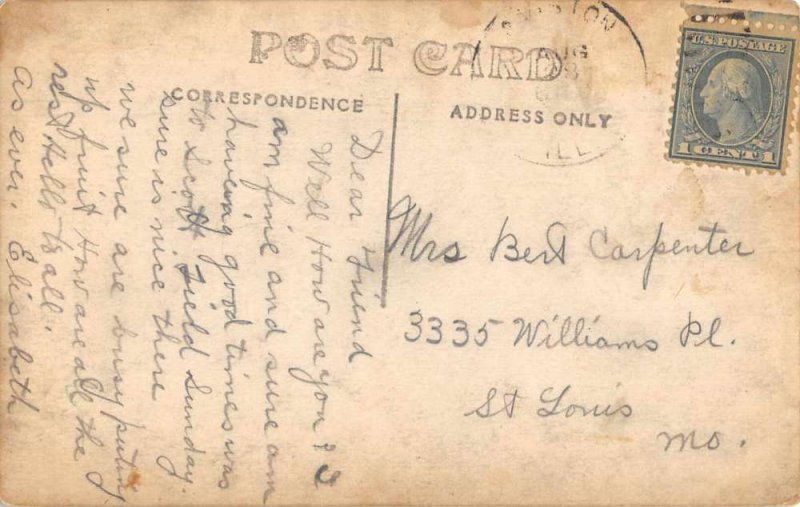 POST CARD
CORRESPONDENCE
ADDRESS ONLY
U.S. POSTAGE
1 CENT 1
AUG
ILL
Dear Friend
Well How are you? I
am fine and sure am
having good times was
to Scott Field Sunday.
sure is nice there
we sure are busy puting
up fruit How are all the
rest Hello to all.
As ever, Elisabeth
Mrs Bert Carpenter
3335 Williams Pl.
St Louis
Mo.